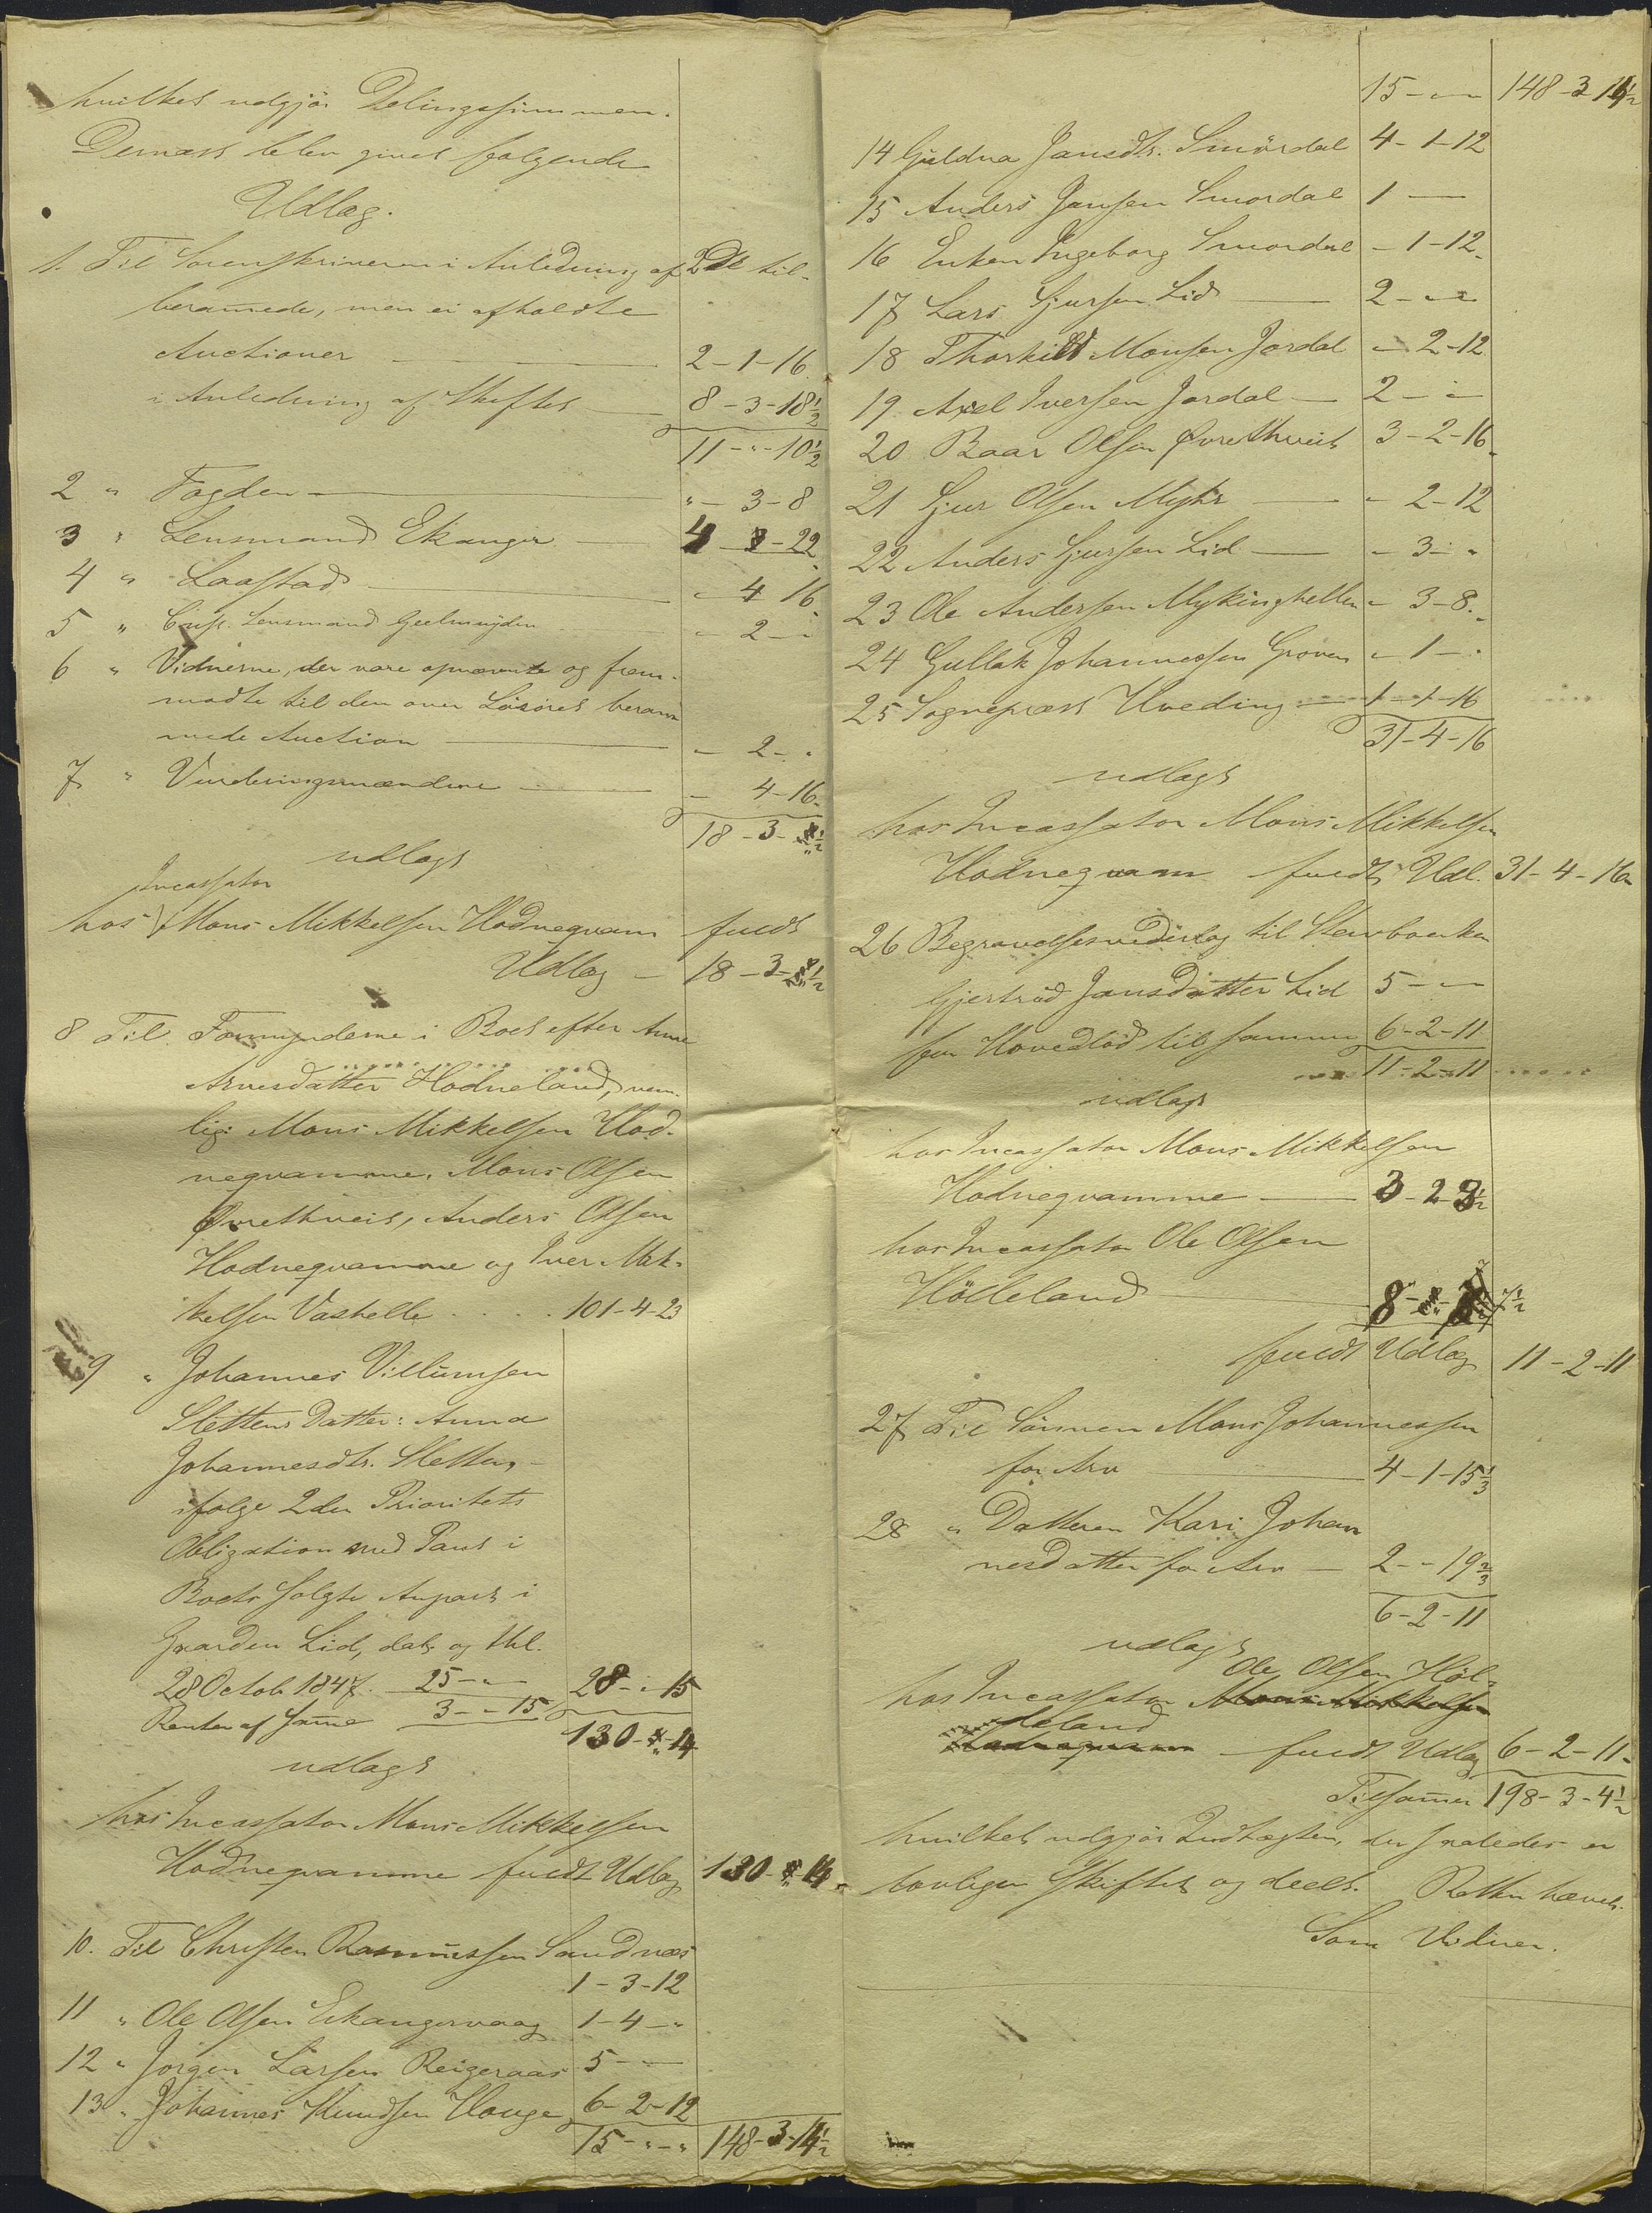 hvilket udgjör Delingssummen.
Dernæst blev givet folgende
Udlæg.
1. Til Sorenskriveren i Anledning af 2de til-
beramede, men ei afholdte
Auctioner 2-1-16
i Anledning af Skiftet 8-3-18½
11-"-10½
2 " Fogden "-3-8
3 " Lensmand Ekanger 4 3-22
4 " Laastad - 4 16
5 " Const. Lensmand Geelmuÿden - 2 -
6 " Vidnerne, der vare opnævnte og frem-
mødte til den over Lösöret beram
mede Auction - 2 - "
7 " Vurderingsmændene - 4-16
18-3-½
udlagt
Incassator
hos Mons Mikkelsen Hodneqvam fuldt
Udlæg - 18-3-½
8 Til Formynderne i Boet efter Anne
Arnesdatter Hodneland, nem-
lig: Mons Mikkelsen Hod-
neqvamme, Mons Olsen
Qvrethveit, Anders Olsen
Hodneqvamme og Iver Mik-
kelsen Vashelle 101-4-23
9 " Johannes Villumsen
Slettens Datter: Anna
Johannesdtr. Sletten,
ifolge 2den Prioritets
Obligation med Pant i
Boets solgte Anpart i
Gaarden Lid, dat. og thl.
28 Octob. 1847. 25-"- 28-"-15
Renter af same 3-"-15
130-"-14
udlagt
hos Incassator Mons Mikkelsen
Hodneqvamme fuldt Udlæg 130-"-14
10. Til Christen Rasmussen Sandnæs
1-3-12
11 " Ole Olsen Eikangervaag 1-4-"
12 " Jörgen Larsen Reigeraas 5-"-
13 " Johannes Knudsen Houge 6-2-12
15-"-" 148-3-14½
15-"- 148-3-14½
14 Guldna Jansdtr. Smördal 4-1-12
15 Anders Jansen Smordal 1 -
16 Enken Ingeborg Smordal - 1-12
17 Lars Sjursen Lid 2-"-
18 Thorkild Monsen Jordal - 2-12
19 Axel Iversen Jordal 2-"-
20 Baar Olsen Qvrethveit 3-2-16
21 Sjur Olsen Mykr - 2-12
22 Anders Sjursen Lid - 3-"
23 Ole Andersen Mykinghellen - 3-8
24 Gullak Johannessen Groven - 1-"
25 Sogneprest Uveding 1-1-16
31-4-16
udlagt
hos Incassator Mons Mikkelsen
Hodneqvam fuldt Udl. 31-4-16
26 Begravelsesvederlag til Stervboenken
Gjertrud Jansdatter Lid 5-"-
for Hovedlod til samme 6-2-11
11-2-11
udlagt
hos Incassator Mons Mikkelsen
Hodneqvamme 3-2-3½
hos Incassator Ole Olsen
Hölleland 8-"-7½
fuldt Udlæg 11-2-11
27 Til Sönnen Mons Johannessen
for Arv 4-1-15⅓
28 " Datteren Kari Johan
nesdatter for Arv 2-"-19⅔
6-2-11
udlagt
Ole Olsen Höl-
hos Incassator Mons Mikkelsen
leland
Hodneqvam fuldt Udlæg 6-2-11
Tilsamen 198-3-4½
hvilket udgjör Indtægten, der saaledes er
lovligen skiftet og deelt. Retten hævet.
Som Vidner.